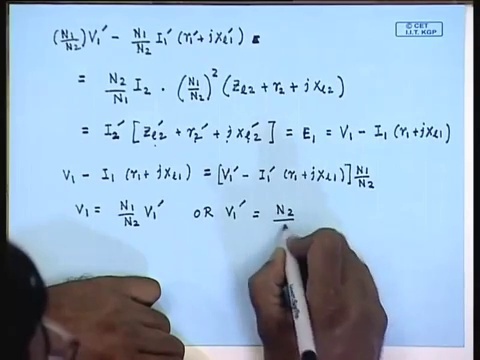 (N₁/N₂)V₁′ − N₁/N₂ I₁′ (r₁′ + jxₗ₁′)
© CET
I.I.T. KGP
= N₂/N₁ I₂ · (N₁/N₂)² (Zₗ₂ + r₂ + jxₗ₂)
= I₂′ [Zₗ₂′ + r₂′ + jxₗ₂′] = E₁ = V₁ − I₁ (r₁ + jxₗ₁)
V₁ − I₁ (r₁ + jxₗ₁) = [V₁′ − I₁′ (r₁ + jxₗ₁)] N₁/N₂
V₁ = N₁/N₂ V₁′ OR V₁′ = N₂/